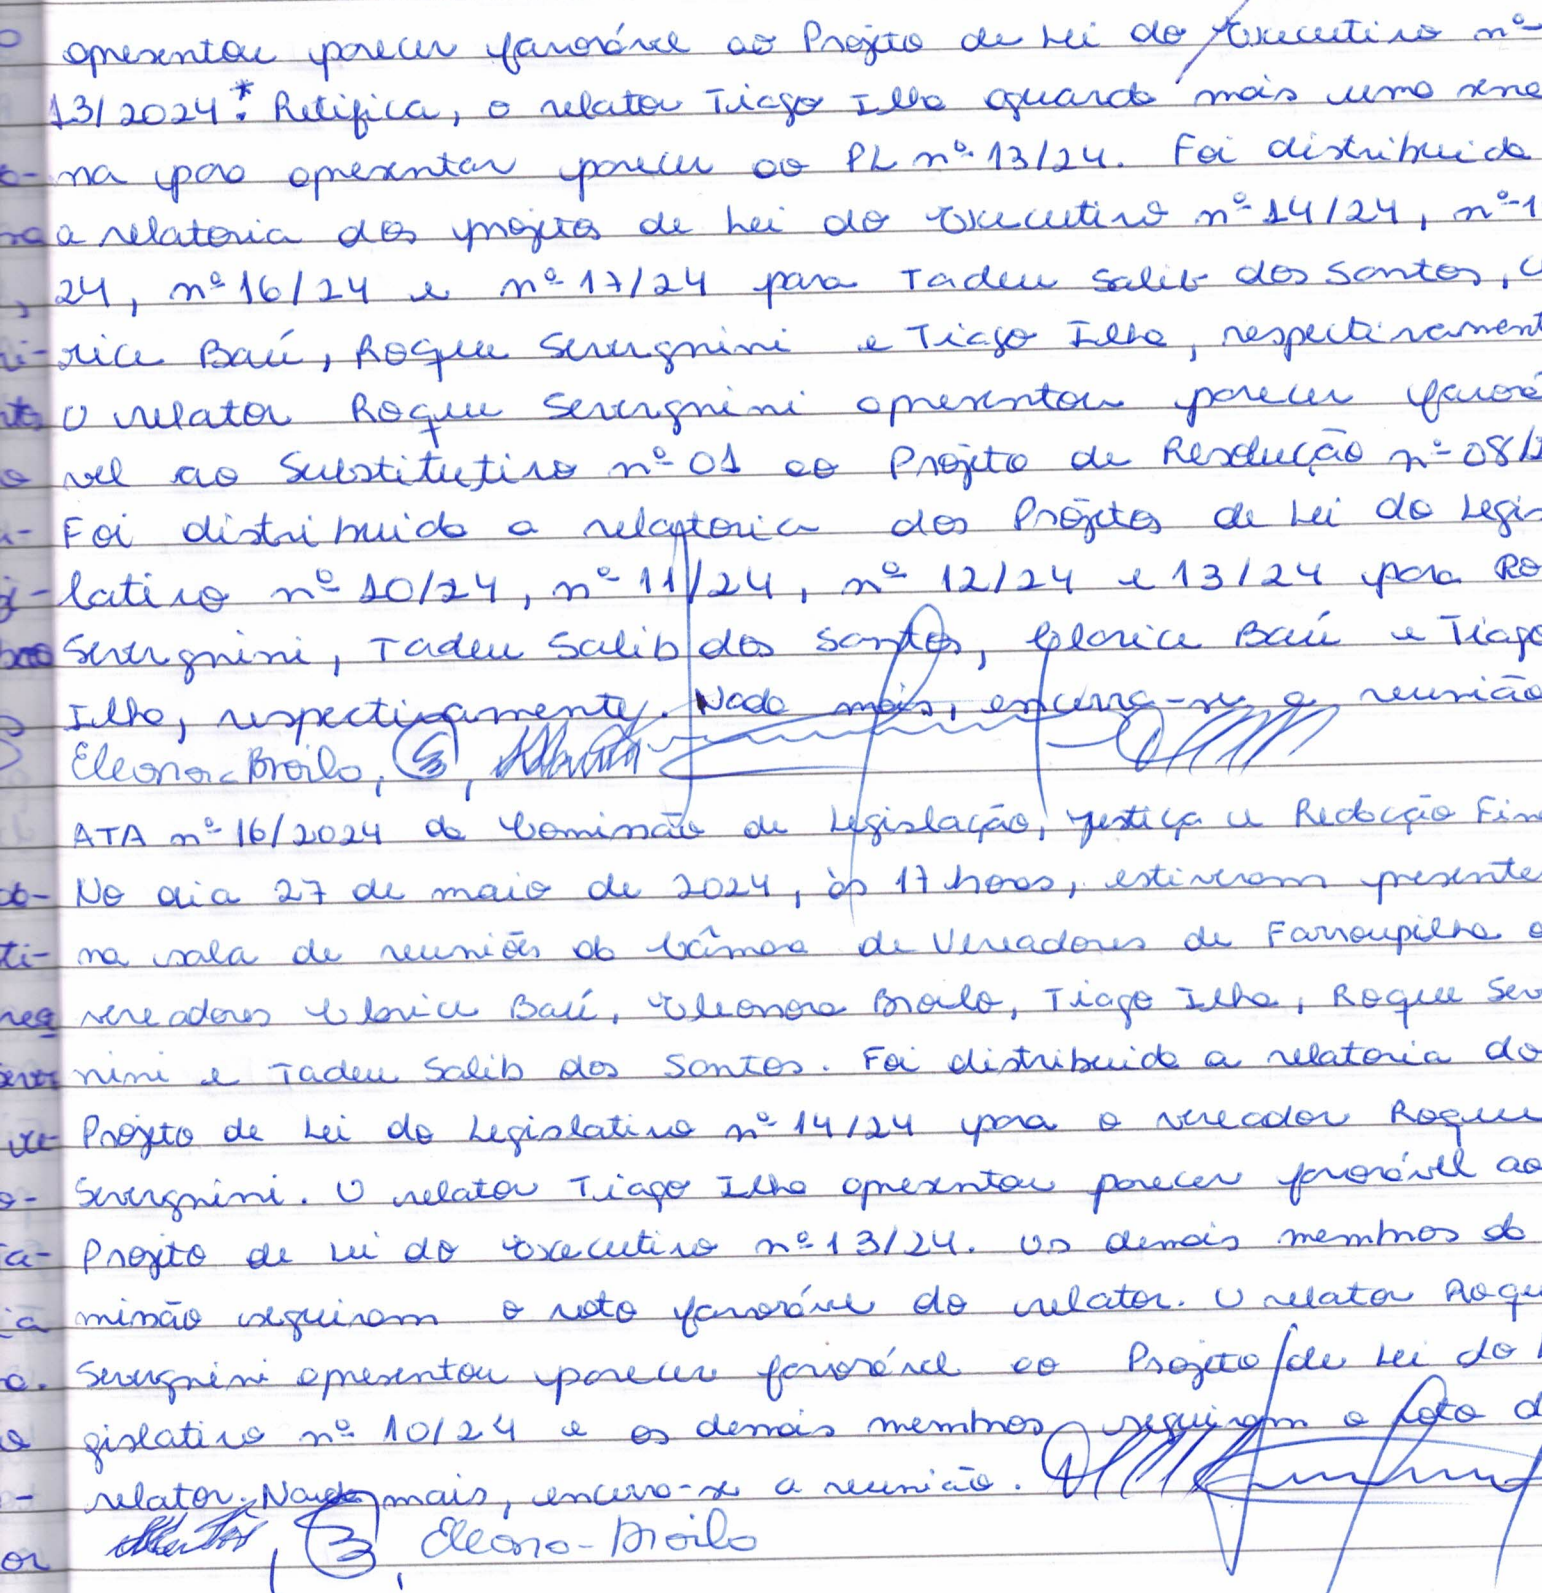 apresentou parecer favorável ao Projeto de Lei do Executivo nº
13/2024.* Retifica, o relator Tiago Ilha aguarda mais uma sema
na para apresentar parecer ao PL nº 13/24. Foi distribuida
a relatoria dos projetos de Lei do Executivo nº 14/24, nº 1
24, nº 16/24 e nº 17/24 para Tadeu Salib dos Santos, C
rice Baú, Roque Severgnini e Tiago Ilha, respectivament
O relator Roque Severgnini apresentou parecer favorá
vel ao Substitutivo nº 01 ao Projeto de Resolução nº 08/2
Foi distribuida a relatoria dos Projetos de Lei do Legis
lativo nº 10/24, nº 11/24, nº 12/24 e 13/24 para Ro
Severgnini, Tadeu Salib dos Santos, Clarice Baú e Tiago
Ilha, respectivamente. Nada mais, encerra-se a reunião
Eleonora Broilo,
ATA nº 16/2024 da Comissão de Legislação, Justiça e Redação Fin
No dia 27 de maio de 2024, às 17 horas, estiveram presente
na sala de reuniões da Câmara de Vereadores de Farroupilha o
vereadores Clarice Baú, Eleonora Broilo, Tiago Ilha, Roque Sev
nini e Tadeu Salib dos Santos. Foi distribuida a relatoria do
Projeto de Lei do Legislativo nº 14/24 para o vereador Roque
Severgnini. O relator Tiago Ilha apresentou parecer favorável ao
Projeto de Lei do Executivo nº 13/24. Os demais membros da
missão seguiram o voto favorável do relator. O relator Roqu
Severgnini apresentou parecer favorável ao Projeto de Lei do L
gislativo nº 10/24 e os demais membros seguiram o voto d
relator. Nada mais, encerra-se a reunião.
Eleonora Broilo